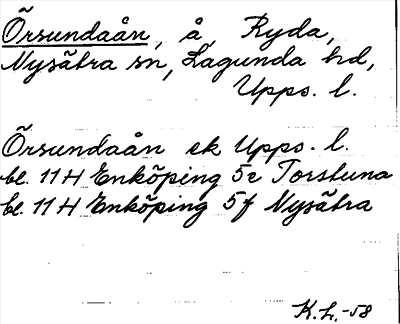 Örsundaån, å, Ryda,
Nysätra sn, Lagunda hd,
Upps. l.
Örsundaån ek Upps. l.
bl. 11 H Enköping 5e Torstuna
bl. 11 H Enköping 5f Nysätra
K.L.-58